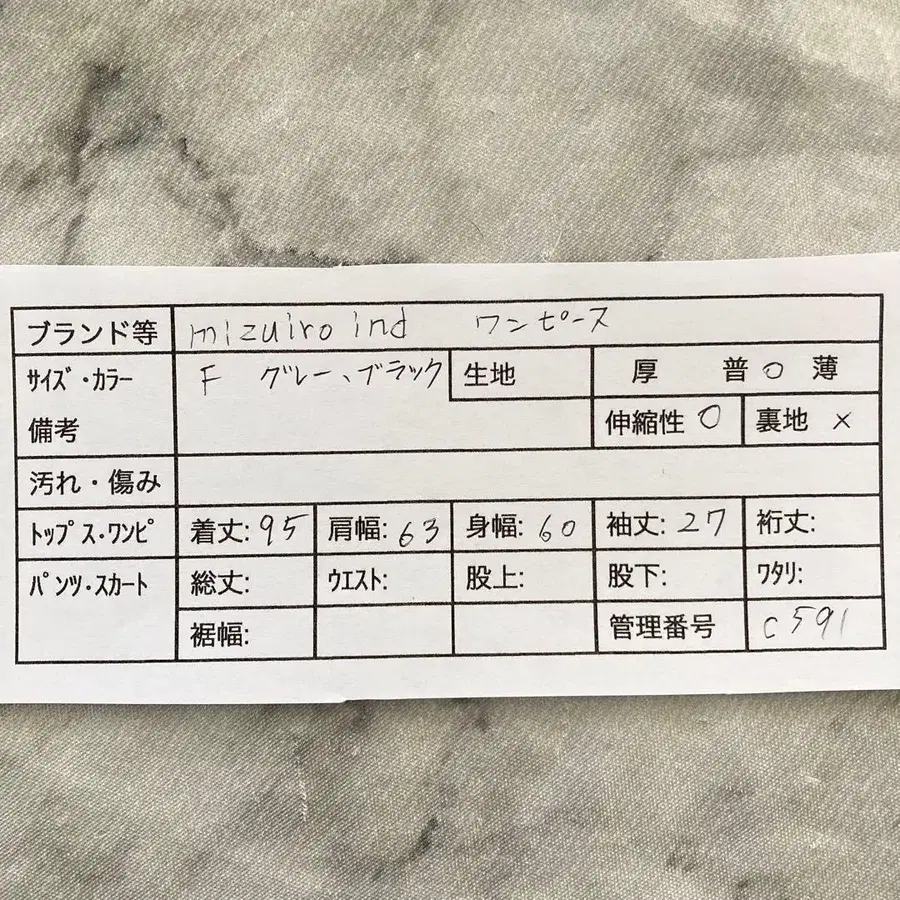 ブランド等 mizuiro ind ワンピース
サイズ・カラー F グレー、ブラック 生地 厚 普○ 薄
備考 伸縮性 ○ 裏地 ×
汚れ・傷み
トップス・ワンピ 着丈: 95 肩幅: 63 身幅: 60 袖丈: 27 裄丈:
パンツ・スカート 総丈: ウエスト: 股上: 股下: ワタリ:
裾幅: 管理番号 c591